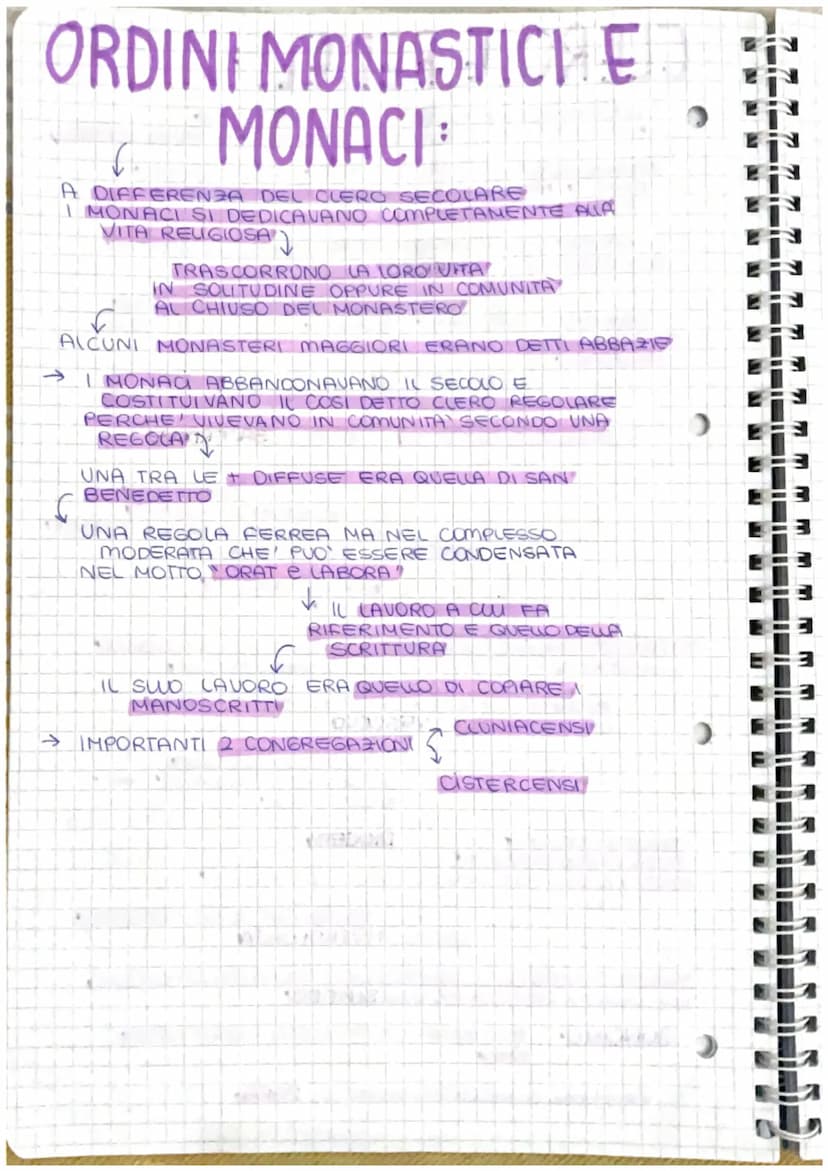 ORDINI MONASTICI E
MONACI:
A DIFFERENZA DEL CLERO SECOLARE
I MONACI SI DEDICAVANO COMPLETAMENTE ALLA
VITA RELIGIOSA
TRASCORRONO LA LORO VITA
IN SOLITUDINE OPPURE IN COMUNITÀ
AL CHIUSO DEL MONASTERO
ALCUNI MONASTERI MAGGIORI ERANO DETTI ABBAZIE
→ I MONACI ABBANDONAVANO IL SECOLO E
COSTITUIVANO IL COSI DETTO CLERO REGOLARE
PERCHE' VIVEVANO IN COMUNITÀ SECONDO UNA
REGOLA
UNA TRA LE + DIFFUSE ERA QUELLA DI SAN
BENEDETTO
UNA REGOLA FERREA MA NEL COMPLESSO
MODERATA CHE' PUO' ESSERE CONDENSATA
NEL MOTTO "ORAT e LABORA"
IL LAVORO A CUI FA
RIFERIMENTO E QUELLO DELLA
SCRITTURA
IL SUO LAVORO ERA QUELLO DI COPIARE I
MANOSCRITTI
→ IMPORTANTI 2 CONGREGAZIONI
CLUNIACENSI
CISTERCENSI